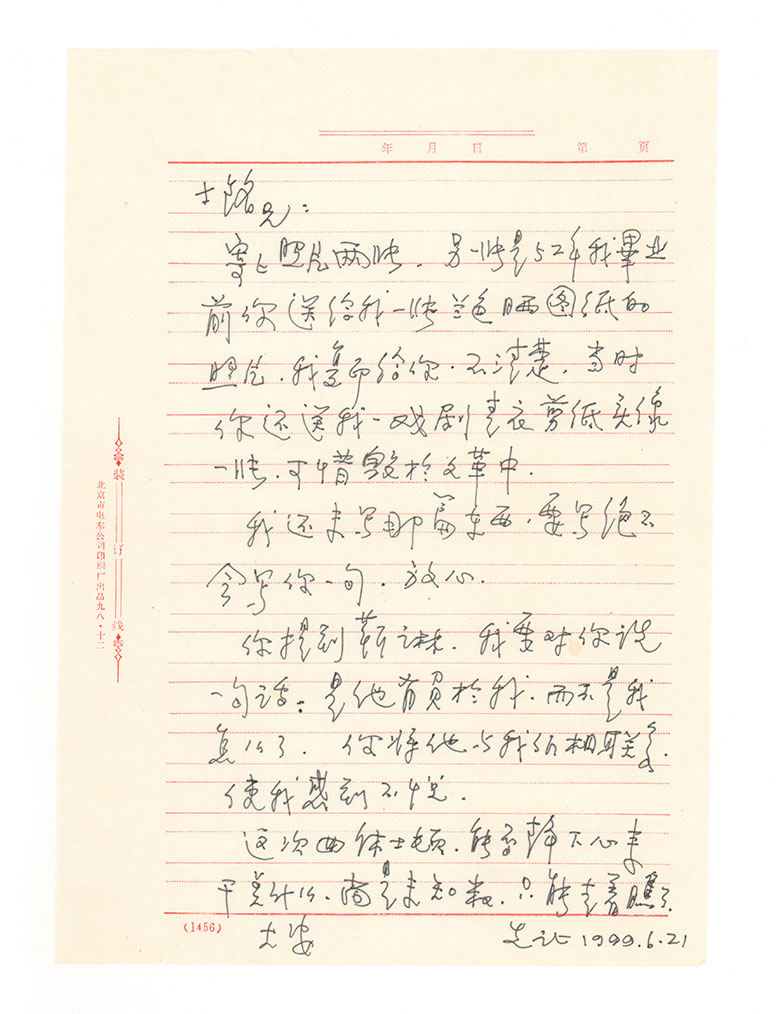 年 月 日 第 页
士铭兄：
寄上照片两张．另一张是52年我畢业
前你送给我一张兰色晒图纸的
照片．我复印给你．不清楚．当时
你还送我一戏剧青衣剪纸头像
一张．可惜毁於文革中．
我还未写那篇东西．要写绝不
会写你一句．放心．
你提到靳之林．我要对你说
一句话：是他有負於我．而不是我
怎么了．你将他与我们相联系．
使我感到不悦．
这次回休士顿．能否静下心来
干些什么．尚是未知数．只能走着瞧了．
大安
1999.6.21
(1456)
装订线
北京市电车公司印刷厂出品九八·十二